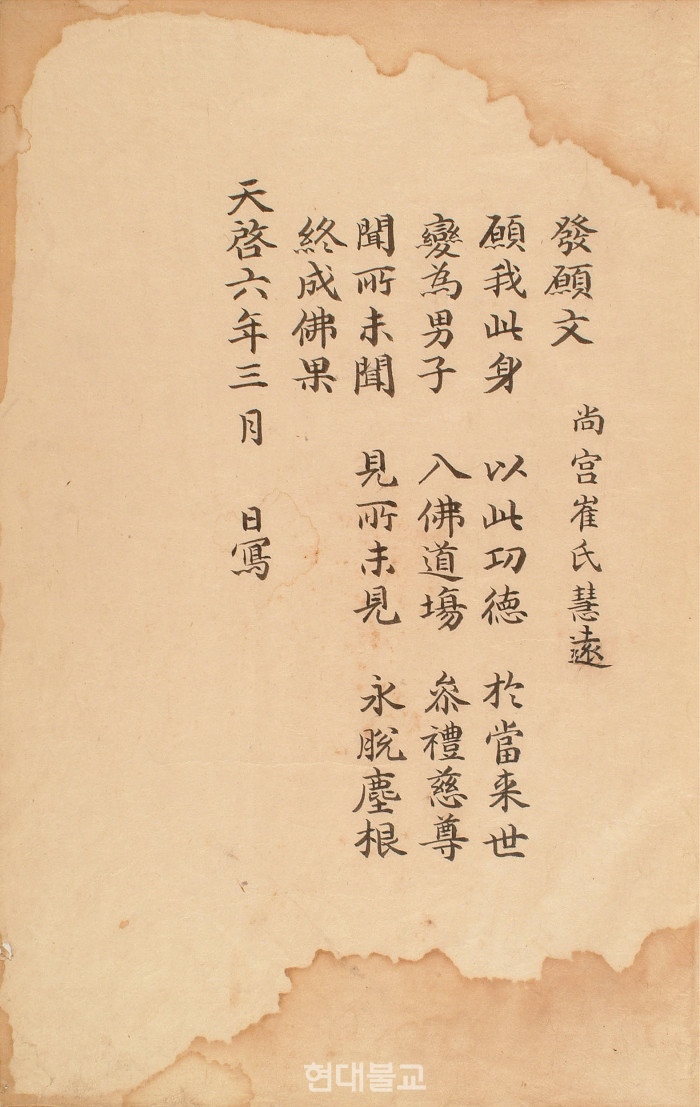 發願文
尚宮崔氏慧遠
願我此身 以此功德 於當来世
變為男子 入佛道塲 叅禮慈尊
聞所未聞 見所未見 永脫塵根
終成佛果
天啓六年三月 日寫
현대불교